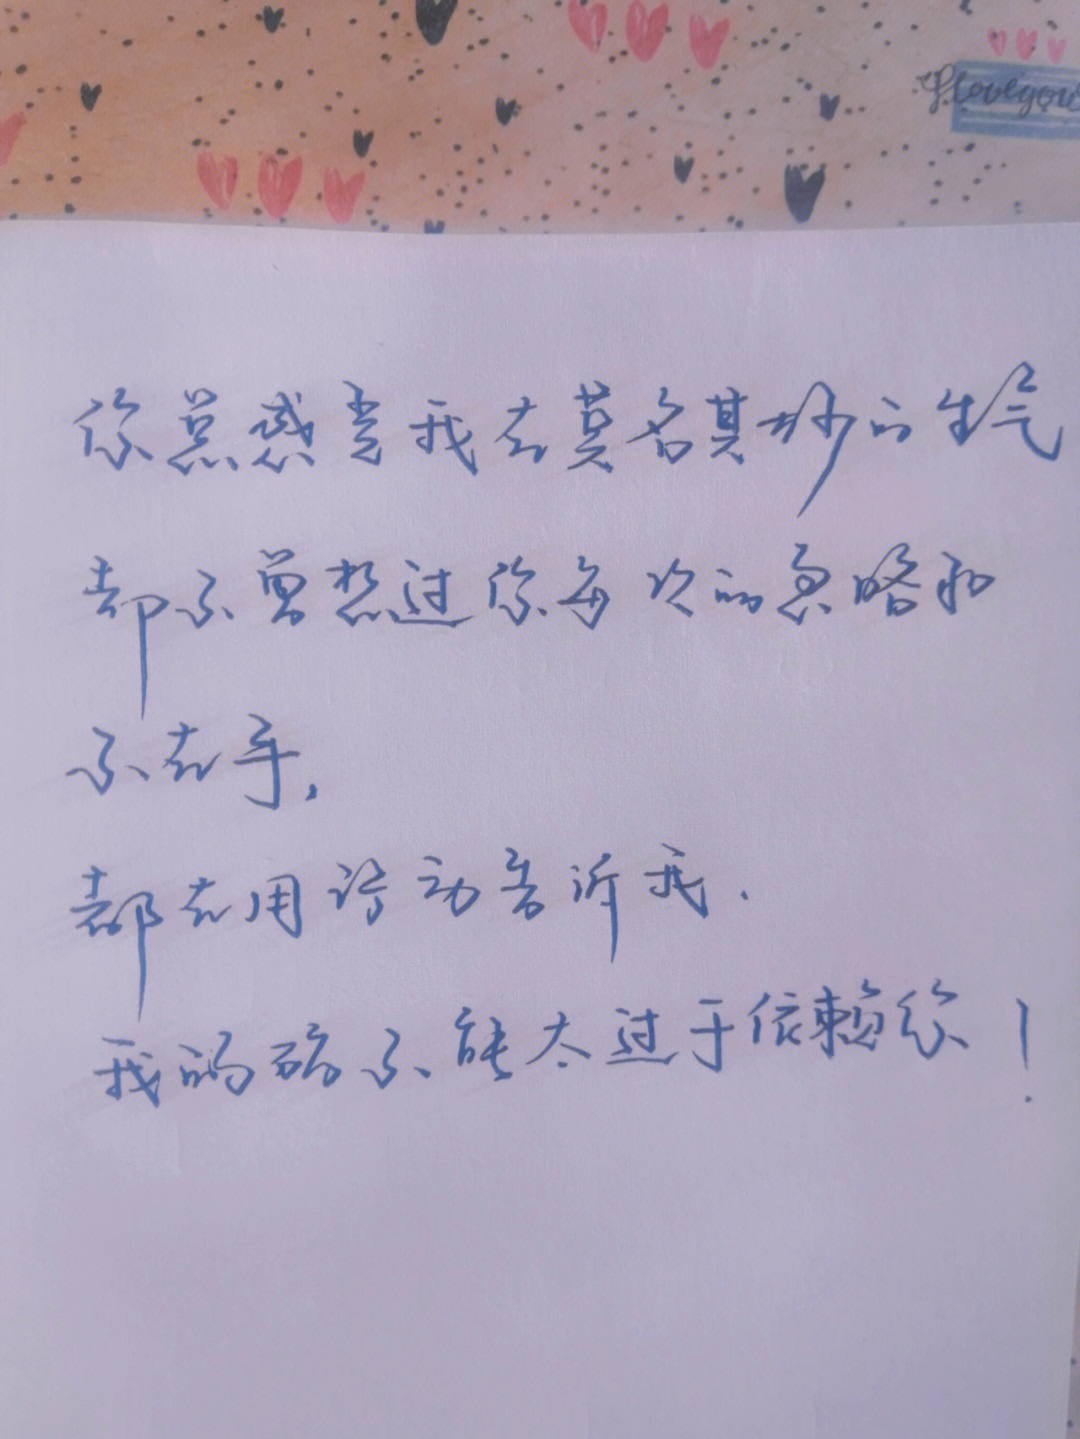 Iloveyou
你总感觉我在莫名其妙的生气
却不曾想过你每次的忽略和
不在乎,
都在用行动告诉我.
我的确不能太过于依赖你!